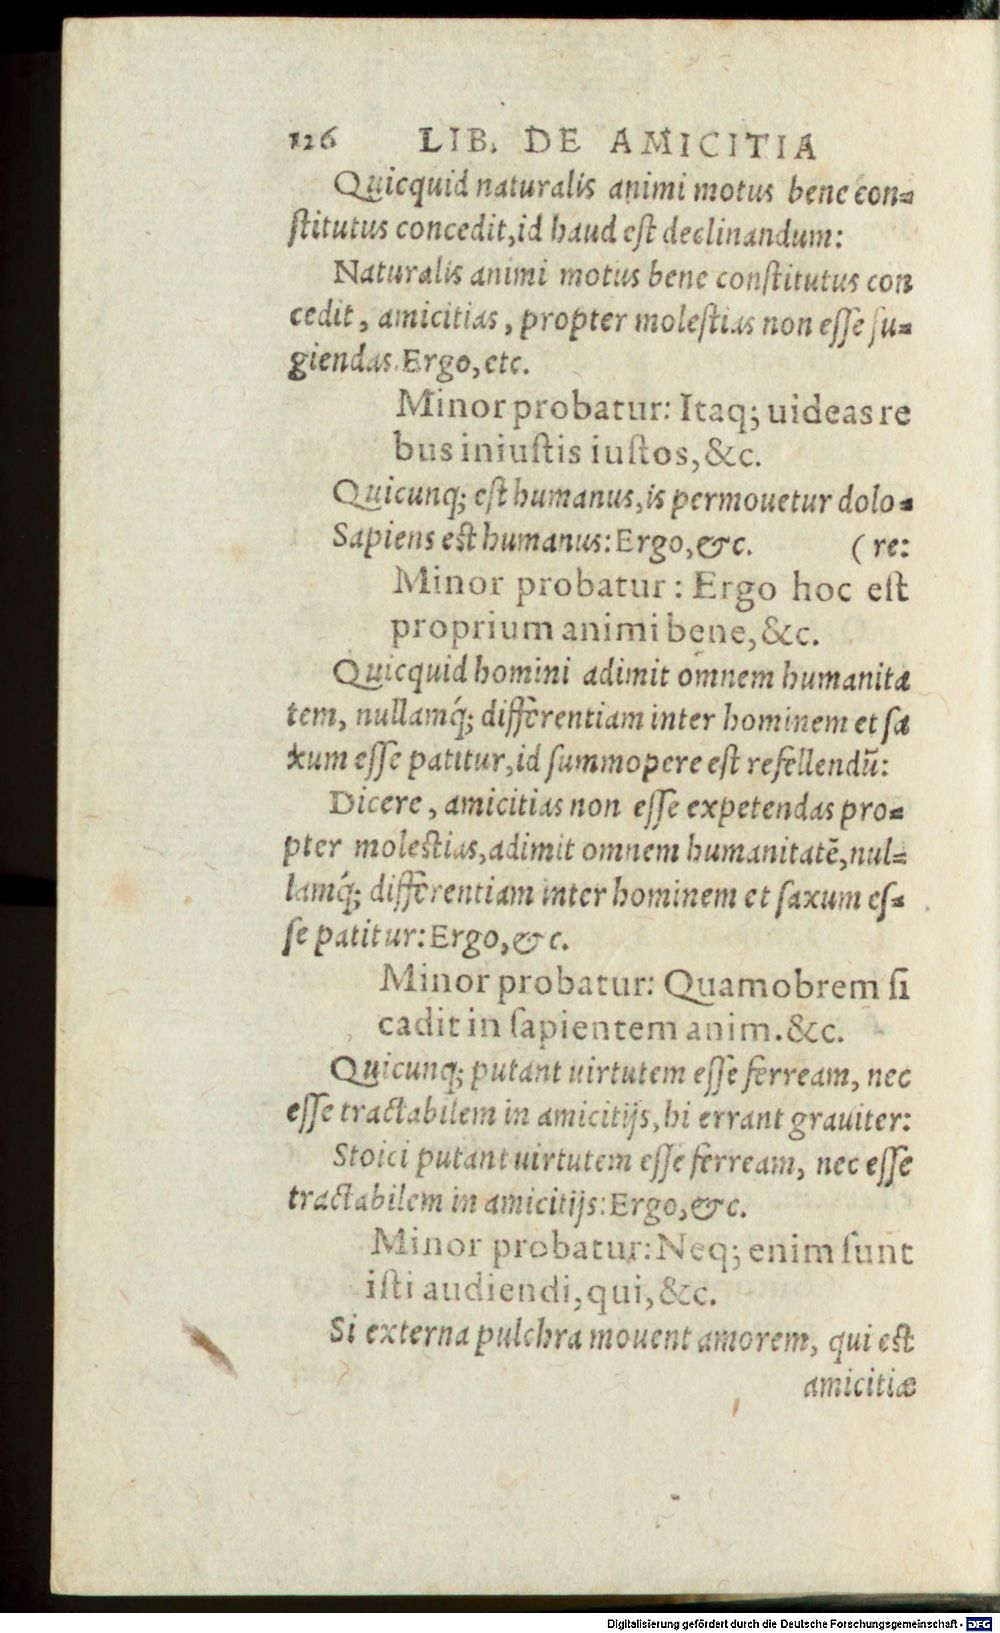 126 LIB. DE AMICITIA
Quicquid naturalis animi motus bene con=
ſtitutus concedit, id haud eſt declinandum:
Naturalis animi motus bene conſtitutus con
cedit, amicitias, propter moleſtias non eſſe fu=
giendas. Ergo, etc.
Minor probatur: Itaq; uideas re
bus iniuſtis iuſtos, &c.
Quicunq; eſt humanus, is permouetur dolo=
Sapiens est humanus: Ergo, &c. (re:
Minor probatur: Ergo hoc eſt
proprium animi bene, &c.
Quicquid homini adimit omnem humanita
tem, nullamq́; differentiam inter hominem et ſa
xum eſſe patitur, id ſummopere eſt refellendũ:
Dicere, amicitias non eſſe expetendas pro=
pter molestias, adimit omnem humanitatẽ, nul=
lamq́; differentiam inter hominem et ſaxum eſ=
ſe patitur: Ergo, & c.
Minor probatur: Quamobrem ſi
cadit in ſapientem anim. &c.
Quicunq; putant uirtutem eſſe ferream, nec
eſſe tractabilem in amicitijs, hi errant grauiter:
Stoici putant uirtutem eſſe ferream, nec eſſe
tractabilem in amicitijs: Ergo, &c.
Minor probatur: Neq; enim ſunt
iſti audiendi, qui, &c.
Si externa pulchra mouent amorem, qui est
amicitiæ
Digitalisierung gefördert durch die Deutsche Forschungsgemeinschaft - DFG